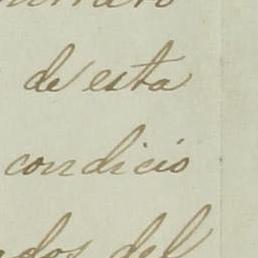 de esta
condicio
dos del